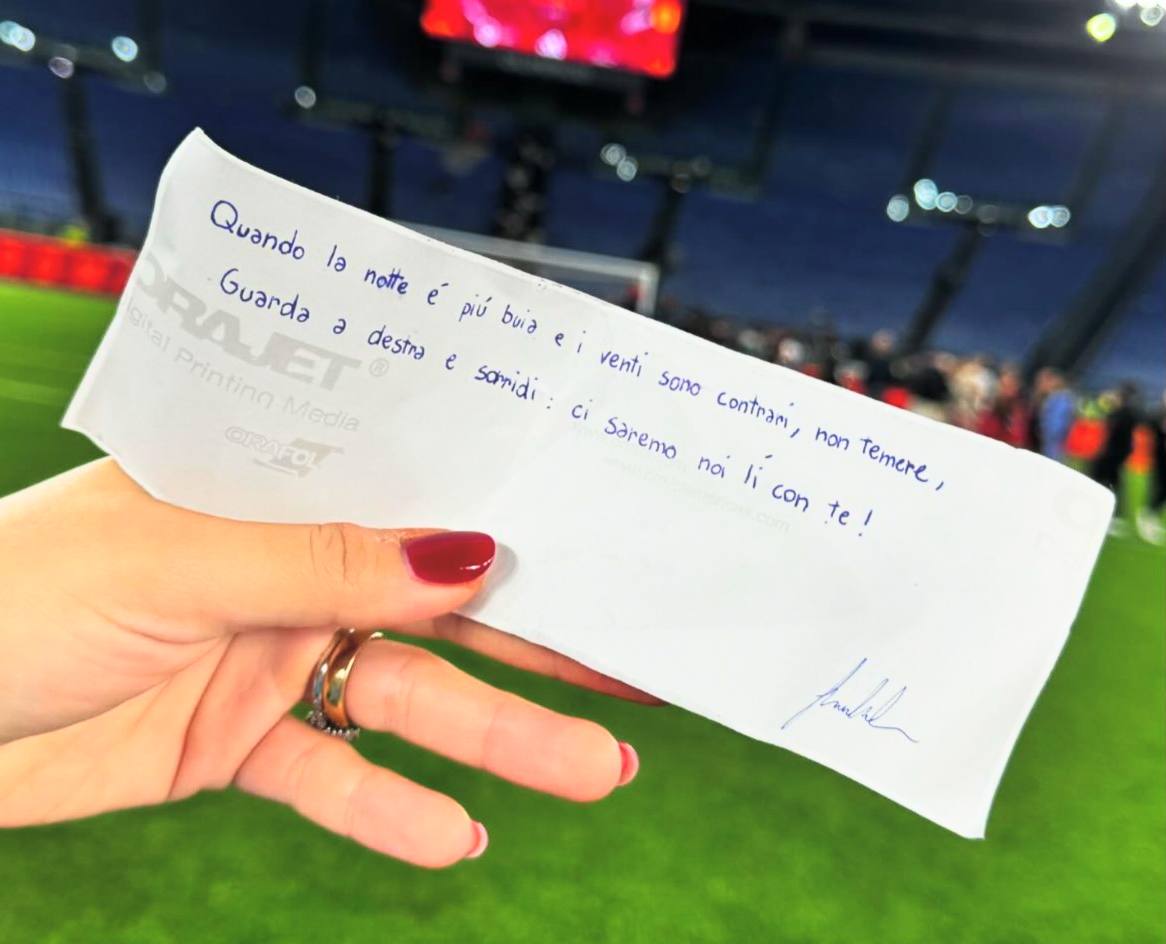 Quando la notte é piú buia e i venti sono contrari, non temere,
Guarda a destra e sorridi: ci saremo noi lí con te!
ORAJET®
igital Printing Media
ORAFOL